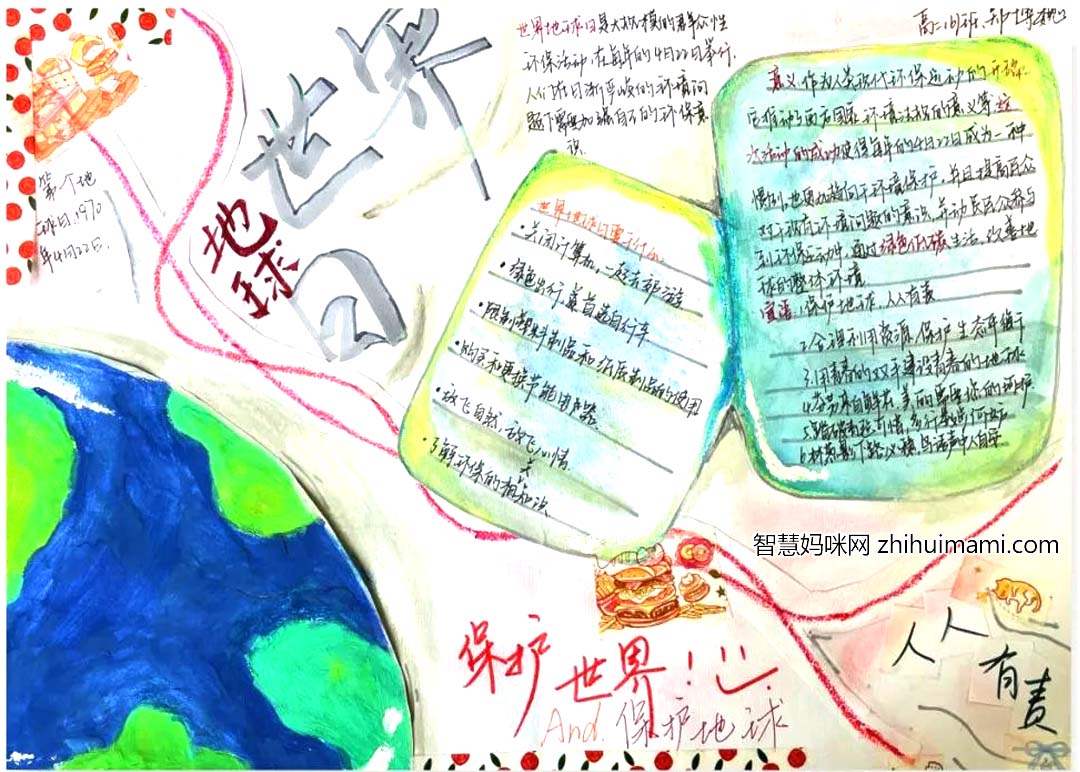 世界
地球
日
世界地球日是大规模的群众性
环保活动,在每年的4月22日举行.
人们在日渐严峻的环境问
题下需要加强自己的环保意
识
第一个地
球日.1970
年4月22日.
世界地球日要干什么
·关闭计算机,一起去郊游
·绿色出行,首选自行车
·限制塑料制品和纸质制品的使用
·购买和更换节能用户器
·放飞自然,放飞心情
·了解环保的相关知识
意义:作为人类现代环保运动的开端.
它推动了西方国家环境法规的意义等.这
次活动的成功使得每年的4月22日成为一种
惯例.
环境保护,并且提高民众
对于现有环境问题的意识,并动员民众参与
到环保运动中,通过绿色低碳生活,改善地
球的整体环境
宣语:保护地球,人人有责
2.合理利用资源,保护生态平衡
3.用青春的双手建设青春的地球
美的需要你的呵护
保护世界!
And 保护地球
人人
有责
智慧妈咪网 zhihuimami.com